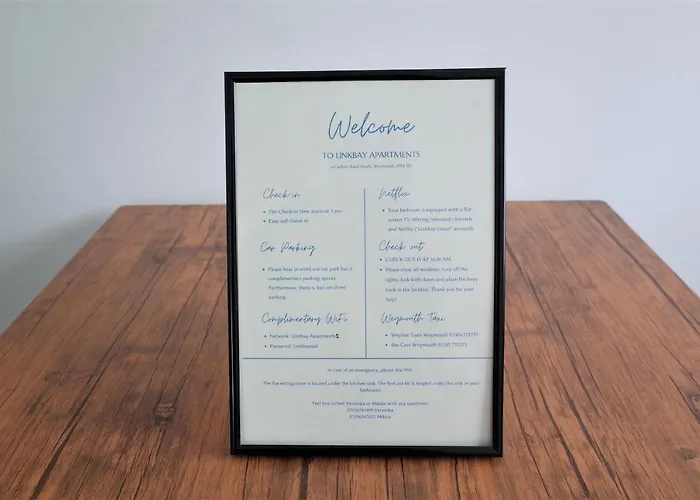 Welcome
TO LINKBAY APARTMENTS
Check in
The Check in time starts at 3 pm
Easy self check in
Car Parking
Please bear in mind our car park has 5
complimentary parking spaces.
Furthermore, there is free on street
parking.
Complimentary WiFi
Network: Linkbay Apartments
Password:
Netflix
Your bedroom is equipped with a flat
screen TV offering television channels
and Netflix ("Linkbay Guest" account).
Check out
CHECK OUT IS AT 10:00 AM
Please close all windows, turn off the
lights, lock both doors and place the keys
back in the lockbox. Thank you for your
help!
Weymouth Taxi
Weyline Taxis Weymouth
Bee Cars Weymouth
In case of an emergency, please dial 999.
The fire extinguisher is located under the kitchen sink. The first aid kit is located under the sink in your
bathroom.
Feel free to text Veronika or Miklos with any questions
Veronika
Miklos